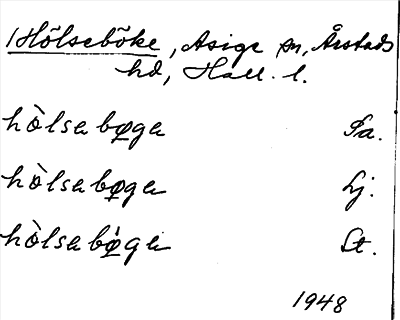 Hölseböke, Asige sn, Årstads
hd, Hall. l.
hòlsabøga Pa.
hòlsabøga Lj.
hòlsabøga St.
1948